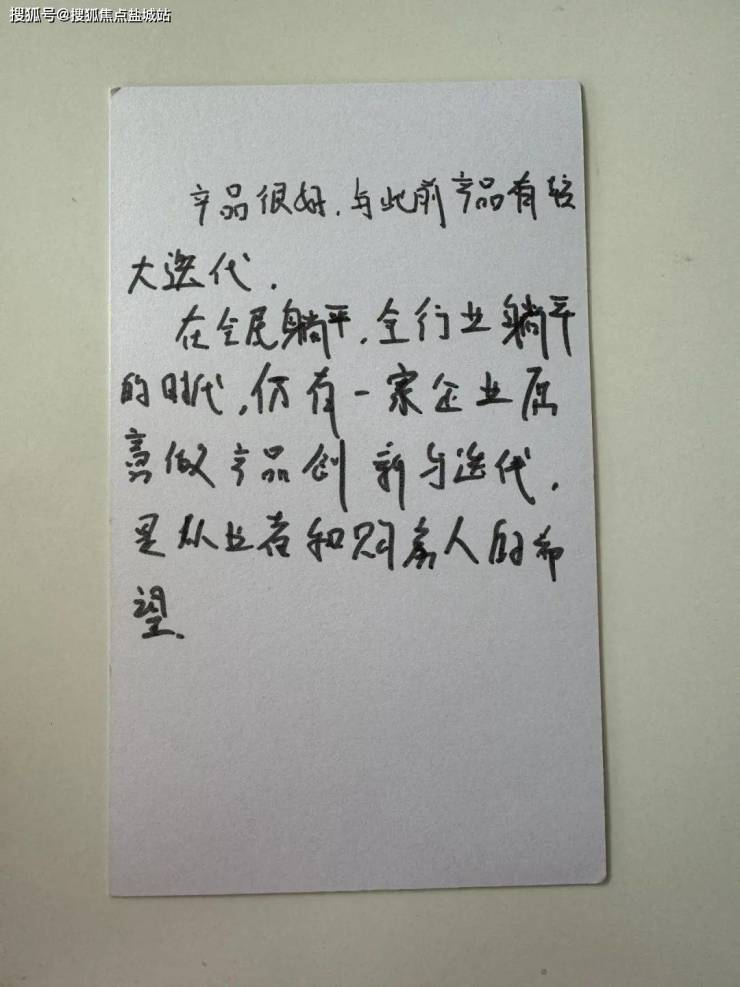 搜狐号@搜狐焦点盐城站
产品很好.与此前产品有较
大迭代.
在全民躺平.全行业躺平
的时代,仍有一家企业居
高做产品创新与迭代.
是从业者和购房人的希
望.